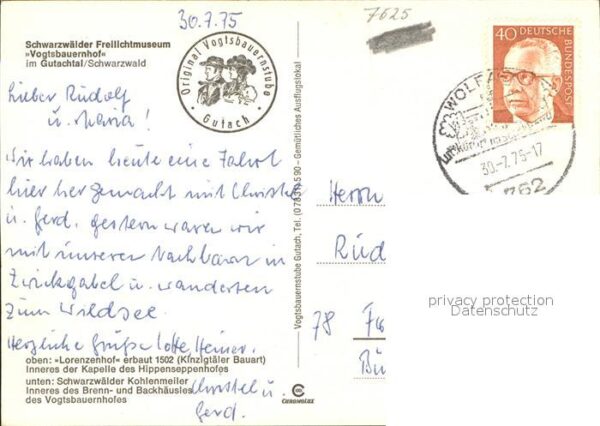 30.7.75
7625
Schwarzwälder Freilichtmuseum
»Vogtsbauernhof«
im Gutachtal/Schwarzwald
Original Vogtsbauernstube
Gutach
40 DEUTSCHE BUNDESPOST
30.-7.75-17
762
Lieber Rudolf
u. Maria!
Wir haben heute eine Fahrt
hier her gemacht mit Christel
u. Gerd. gestern waren wir
mit unseren Nachbarn in
Zwickgabel u. wanderten
zum Wildsee.
Herzliche Grüße Lotte, Heiner.
Christel u.
Gerd.
oben: »Lorenzenhof« erbaut 1502 (Kinzigtäler Bauart)
Inneres der Kapelle des Hippenseppenhofes
unten: Schwarzwälder Kohlenmeiler
Inneres des Brenn- und Backhäusles
des Vogtsbauernhofes
Vogtsbauernstube Gutach, Tel. - Gemütliches Ausflugslokal
CEKROLUX
Herrn
Rud
78
privacy protection
Datenschutz